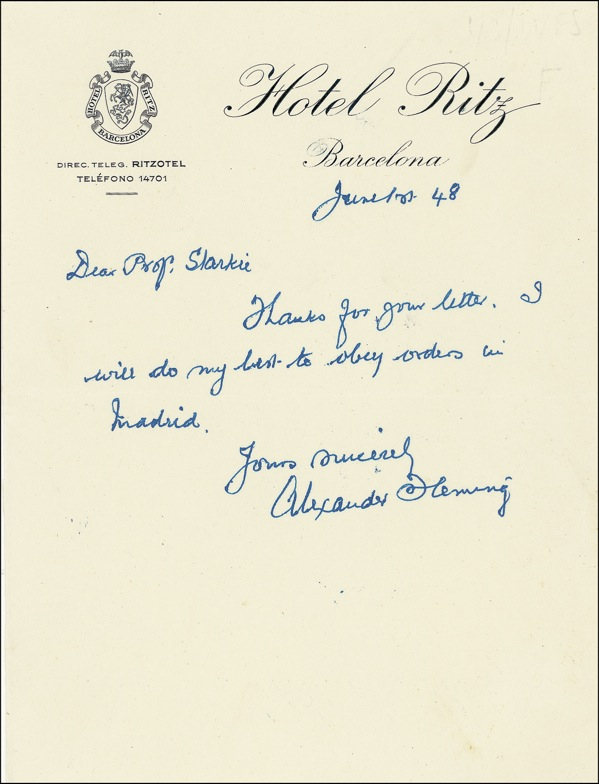 Hotel Ritz
Barcelona
HOTEL RITZ
BARCELONA
DIREC. TELEG. RITZOTEL
TELÉFONO 14701
June 1st 48
Dear Prof. Starkie
Thanks for your letter. I
will do my best to obey orders in
Madrid.
Yours sincerely
Alexander Fleming